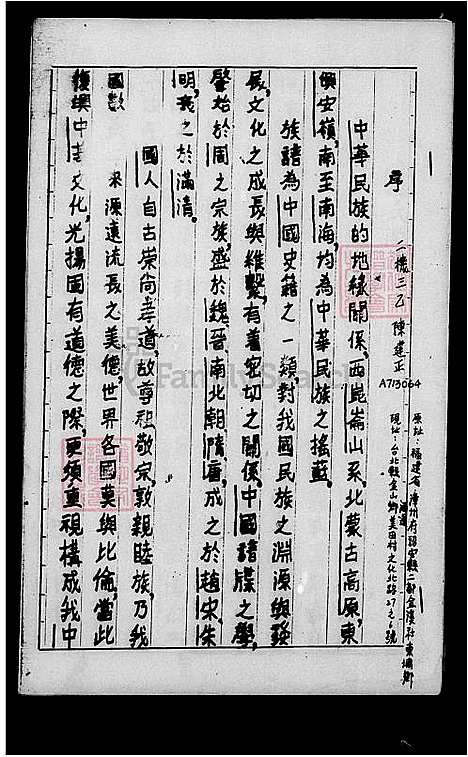 序
二機三乙 陳建正
A713064
原址：福建省漳州府詔安縣二都金溪社東城鄉
現址：台北縣金山鄉美田村文化北路27之6號
中華民族的地緣關係，西崑崙山系，北蒙古高原，東
興安嶺，南至南海，均為中華民族之搖藍。
族譜為中國史籍之一類，對我國民族之淵源與發
展，文化之成長與維繫，有着密切之關係，中國譜牒之學，
肇始於周之宗族，盛於魏晉南北朝隋唐，成之於趙宋、朱
明，衰之於滿清。
國人自古崇尚孝道，故尊祖敬宗敦親睦族，乃我
國數
來源遠流長之美德，世界各國莫與比倫，當此
復興中華文化，光揚固有道德之際，更須重視構成我中
FamilySearch